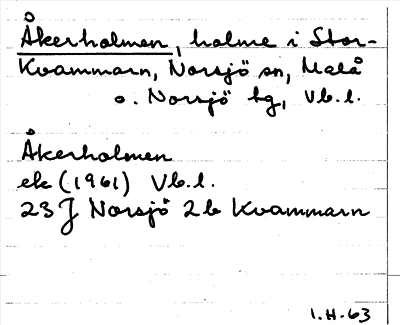 Åkerholmen, holme i Stor-
Kvammarn, Norsjö sn, Malå
o. Norsjö tg, Vb.l.
Åkerholmen
ek (1961) Vb.l.
23 J Norsjö 2b Kvammarn
1.H.63